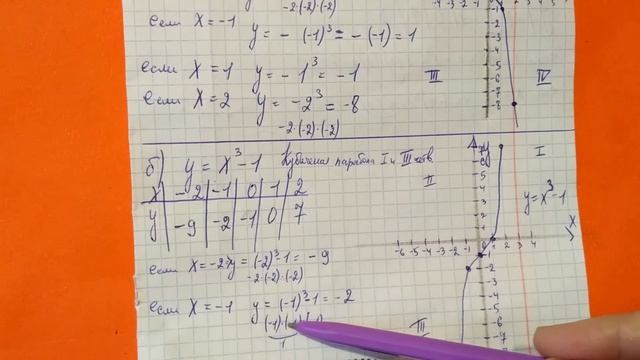 -2·(-2)·(-2)
если X = -1
y = - (-1)³ = - (-1) = 1
если X = 1 y = -1³ = -1
если X = 2 y = -2³ = -8
-2·(-2)·(-2)
III IV
-1
-2
-3
-4
-5
-6
-7
-8
б) y = x³ - 1 Кубическая парабола I и III четв.
X -2 -1 0 1 2
y -9 -2 -1 0 7
если X = -2 y = (-2)³ - 1 = -9
-2·(-2)·(-2)
если X = -1 y = (-1)³ - 1 = -2
1
y
I
II
y = x³ - 1
X
5
4
3
2
1
-6 -5 -4 -3 -2 -1 1 2 3 4
-2
-3
-4
-5
-6
-7
III